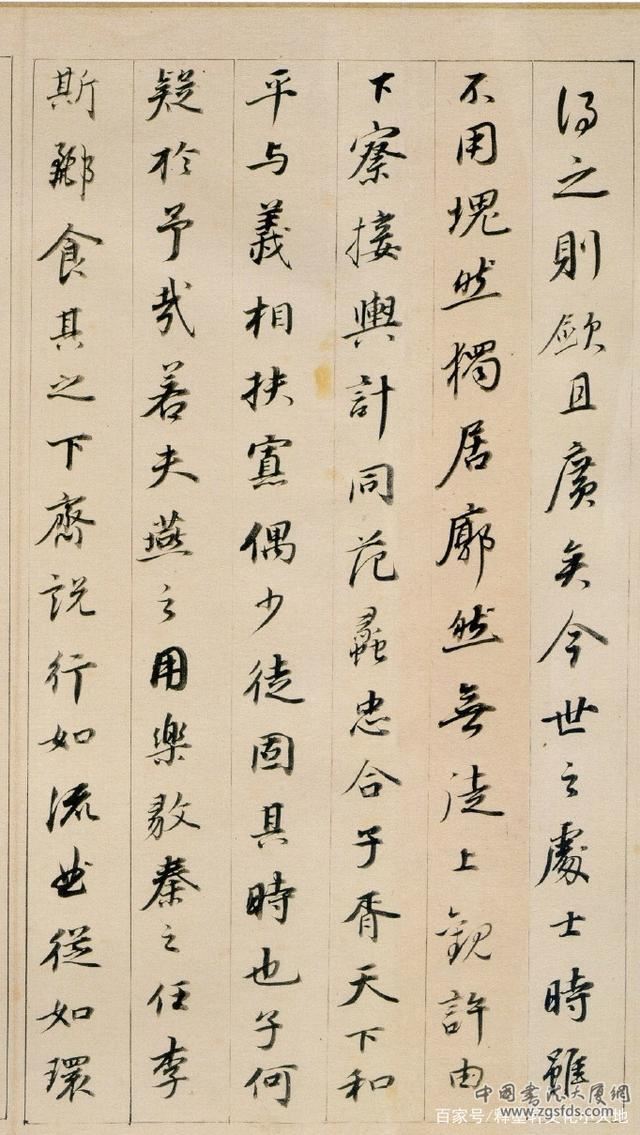 得之則敏且廣矣今世之處士時雖
不用塊然獨居廓然無徒上觀許由
下察接輿計同范蠡忠合子胥天下和
平与義相扶寡偶少徒固其時也子何
疑於予哉若夫燕之用樂毅秦之任李
斯酈食其之下齊説行如流曲從如環
中國書法大厦網
www.zgsfds.com
百家号/